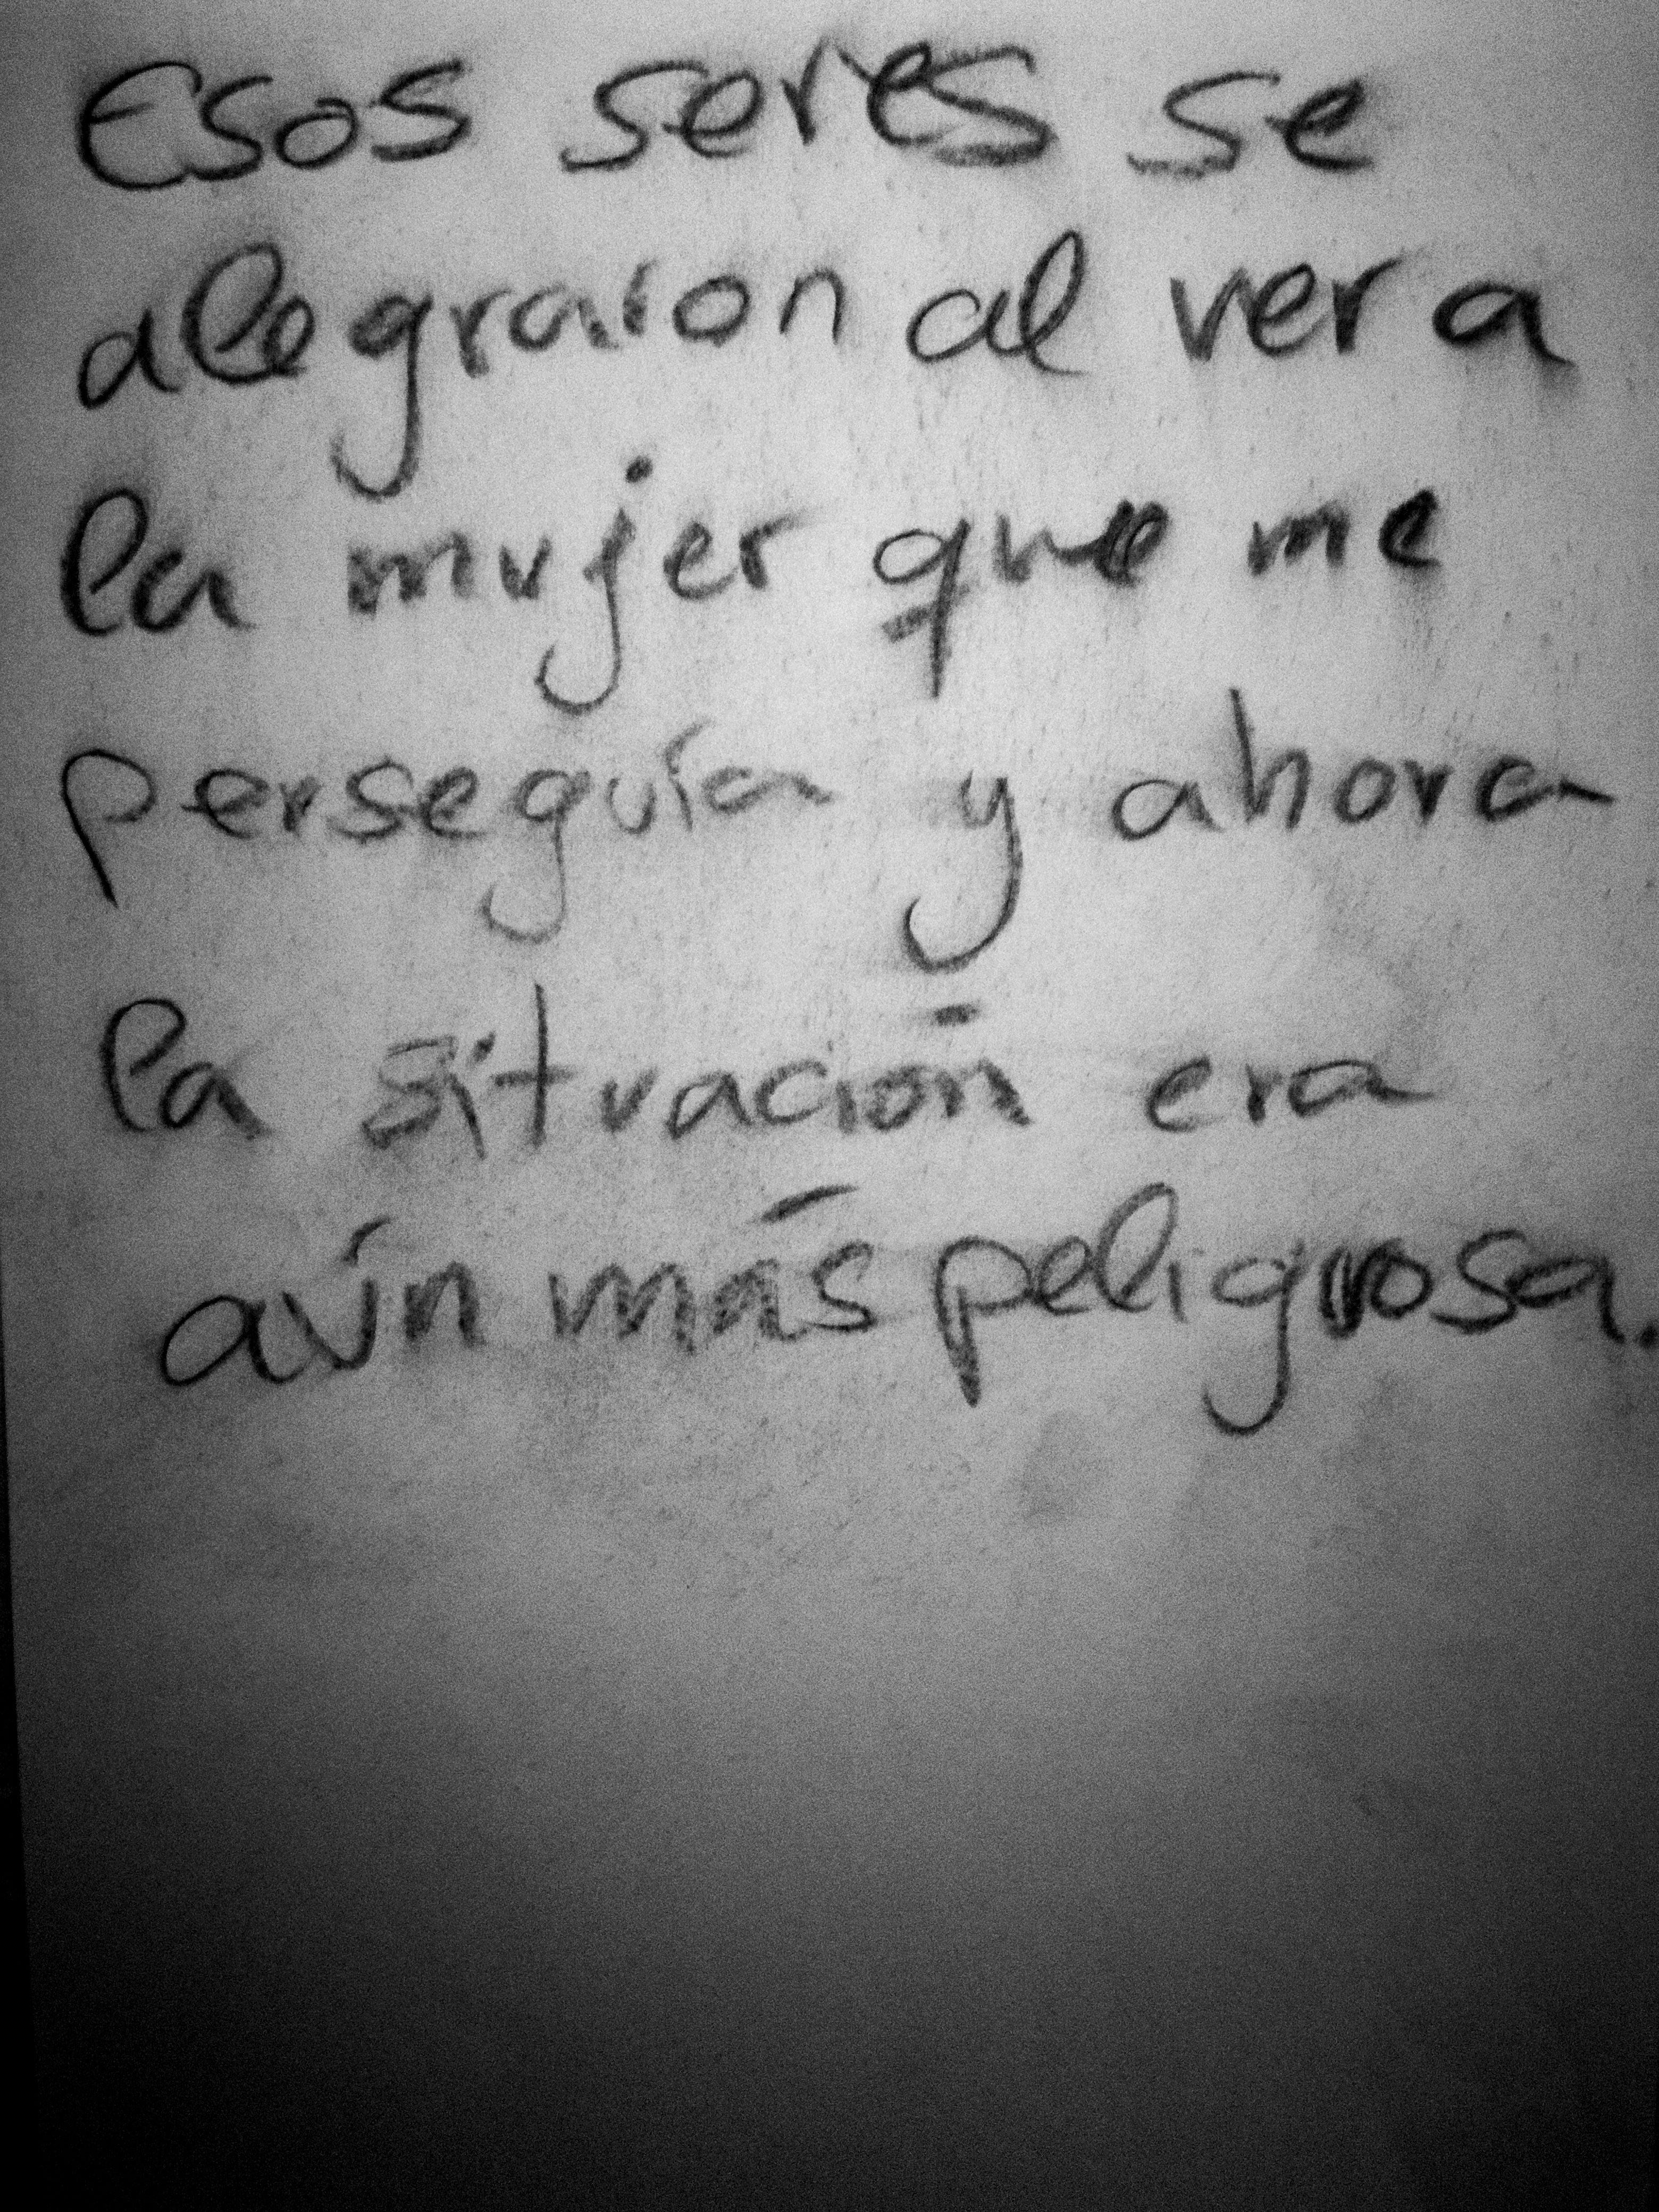 Esos seres se
alegraron al ver a
la mujer que me
perseguía y ahora
la situación era
aún más peligrosa.